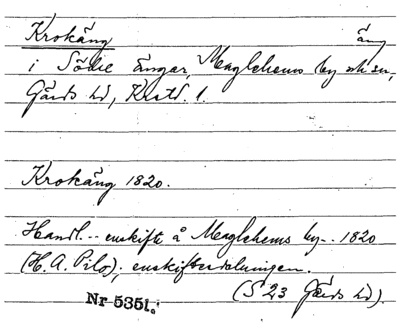 Krokäng äng
i Södre ängar, Maglehems by och sn,
Gärds hd, Krstd. l.
Krokäng 1820.
Handl... enskifte å Maglehems by... 1820
(H. A. Pilo); enskiftesdelningen.
(S 23 Gärds hd).
Nr 5351.